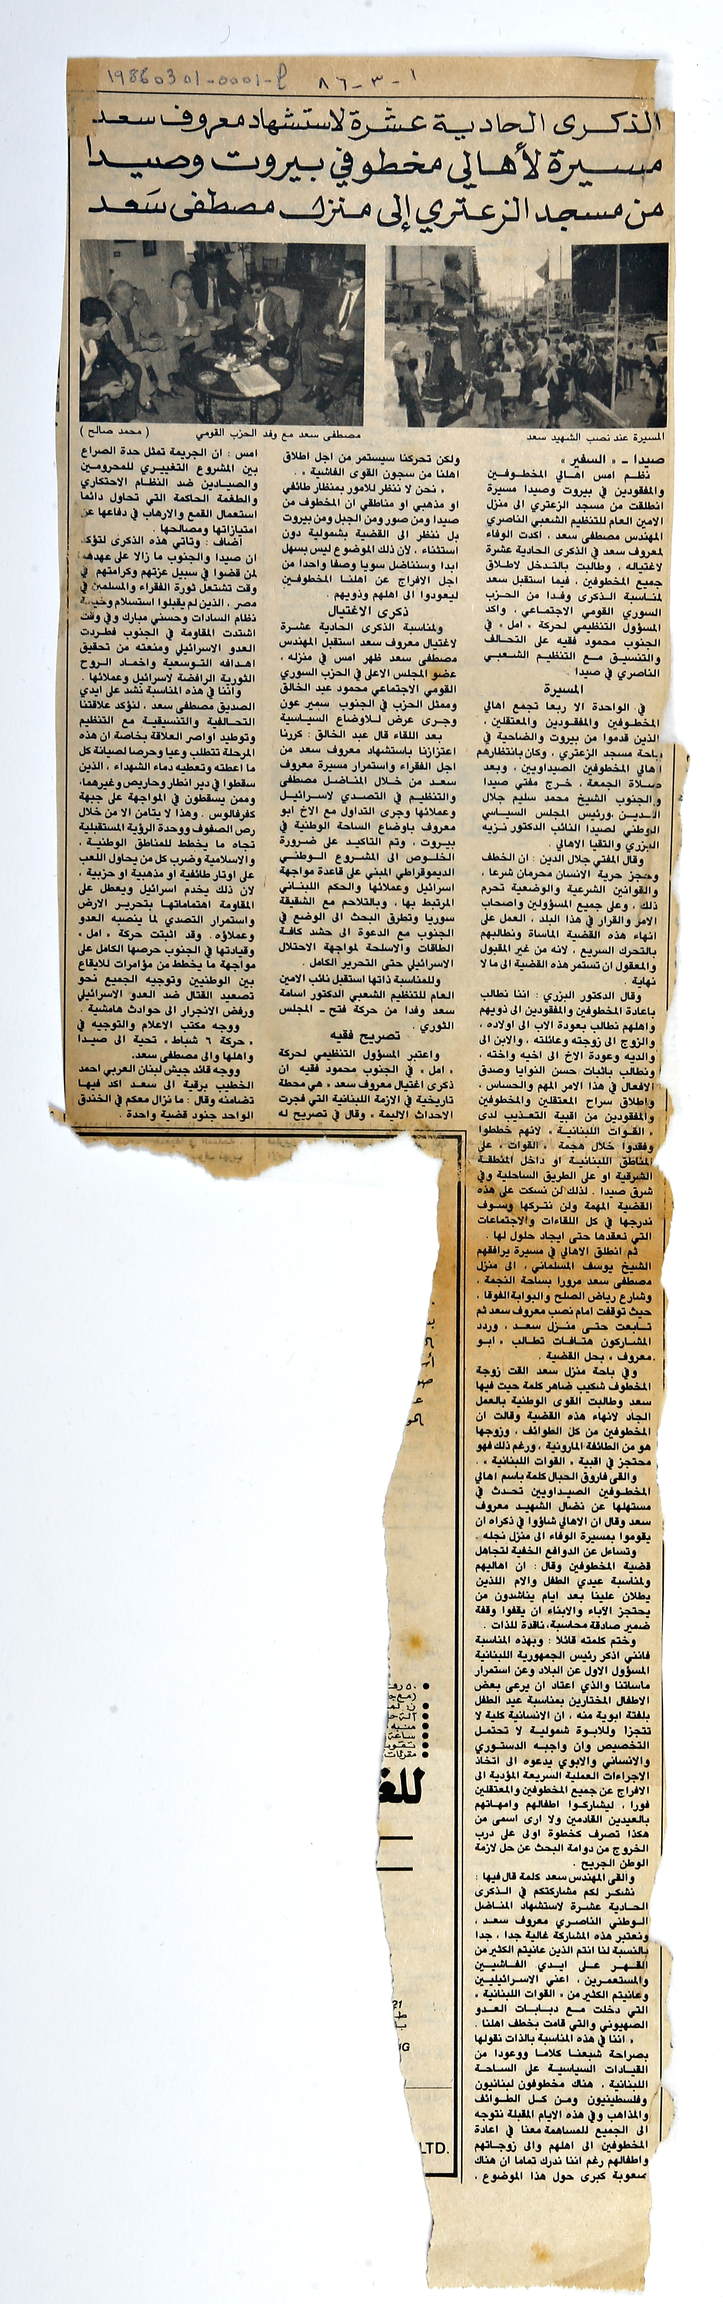 19860301-0001-م
٨٦-٣-١
الذكرى الحادية عشرة لاستشهاد معروف سعد
مسيرة لأهالي مخطوفي بيروت وصيدا
من مسجد الزعتري إلى منزل مصطفى سَعد
المسيرة عند نصب الشهيد سعد
مصطفى سعد مع وفد الحزب القومي
( محمد صالح )
صيدا ـ « السفير »
نظم امس اهالي المخطوفين
والمفقودين في بيروت وصيدا مسيرة
انطلقت من مسجد الزعتري الى منزل
الامين العام للتنظيم الشعبي الناصري
المهندس مصطفى سعد ، اكدت الوفاء
لمعروف سعد في الذكرى الحادية عشرة
لاغتياله ، وطالبت بالتدخل لاطلاق
جميع المخطوفين ، فيما استقبل سعد
لمناسبة الذكرى وفدا من الحزب
السوري القومي الاجتماعي ، واكد
المسؤول التنظيمي لحركة « امل » في
الجنوب محمود فقيه على التحالف
والتنسيق مع التنظيم الشعبي
الناصري في صيدا .
المسيرة
في الواحدة الا ربعا تجمع اهالي
المخطوفين والمفقودين والمعتقلين ،
الذين قدموا من بيروت والضاحية في
باحة مسجد الزعتري ، وكان بانتظارهم
اهالي المخطوفين الصيداويين ، وبعد
صلاة الجمعة ، خرج مفتي صيدا
والجنوب الشيخ محمد سليم جلال
الدين ،ورئيس المجلس السياسي
الوطني لصيدا النائب الدكتور نزيه
البزري والتقيا الاهالي .
وقال المفتي جلال الدين : ان الخطف
وحجز حرية الانسان محرمان شرعا ،
والقوانين الشرعية والوضعية تحرم
ذلك ، وعلى جميع المسؤولين واصحاب
الامر والقرار في هذا البلد ، العمل على
انهاء هذه القضية الماساة ونطالبهم
بالتحرك السريع ، لانه من غير المقبول
والمعقول ان تستمر هذه القضية الى ما لا
نهاية .
وقال الدكتور البزري : اننا نطالب
باعادة المخطوفين والمفقودين الى ذويهم
واهلهم نطالب بعودة الاب الى اولاده ،
والزوج الى زوجته وعائلته ، والابن الى
والديه وعودة الاخ الى اخيه واخته ،
ونطالب باثبات حسن النوايا وصدق
الافعال في هذا الامر المهم والحساس ،
واطلاق سراح المعتقلين والمخطوفين
والمفقودين من اقبية التعذيب لدى
« القوات اللبنانية » لانهم خطفوا
وفقدوا خلال هجمة « القوات » على
المناطق اللبنانية او داخل المنطقة
الشرقية او على الطريق الساحلية وفي
شرق صيدا . لذلك لن نسكت على هذه
القضية المهمة ولن نتركها وسوف
ندرجها في كل اللقاءات والاجتماعات
التي نعقدها حتى ايجاد حلول لها .
ثم انطلق الاهالي في مسيرة يرافقهم
الشيخ يوسف المسلماني ، الى منزل
مصطفى سعد مرورا بساحة النجمة ،
وشارع رياض الصلح والبوابة الفوقا ،
حيث توقفت امام نصب معروف سعد ثم
تابعت حتى منزل سعد ، وردد
المشاركون هتافات تطالب « ابو
معروف » بحل القضية .
وفي باحة منزل سعد القت زوجة
المخطوف شكيب ضاهر كلمة حيت فيها
سعد وطالبت القوى الوطنية بالعمل
الجاد لانهاء هذه القضية وقالت ان
المخطوفين من كل الطوائف ، وزوجها
هو من الطائفة المارونية ، ورغم ذلك فهو
محتجز في اقبية « القوات اللبنانية » .
والقى فاروق الحبال كلمة باسم اهالي
المخطوفين الصيداويين تحدث في
مستهلها عن نضال الشهيد معروف
سعد وقال ان الاهالي شاؤوا في ذكراه ان
يقوموا بمسيرة الوفاء الى منزل نجله .
وتساءل عن الدوافع الخفية لتجاهل
قضية المخطوفين وقال : ان اهاليهم
ولمناسبة عيدي الطفل والام اللذين
يطلان علينا بعد ايام يناشدون من
يحتجز الآباء والابناء ان يقفوا وقفة
ضمير صادقة محاسبة، ناقدة للذات .
وختم كلمته قائلا : وبهذه المناسبة
فانني اذكر رئيس الجمهورية اللبنانية
المسؤول الاول عن البلاد وعن استمرار
ماساتنا والذي اعتاد ان يرعى بعض
الاطفال المختارين بمناسبة عيد الطفل
بلفتة ابوية منه ، ان الانسانية كلية لا
تتجزا وللابوة شمولية لا تحتمل
التخصيص وان واجبه الدستوري
والانساني والابوي يدعوه الى اتخاذ
الاجراءات العملية السريعة المؤدية الى
الافراج عن جميع المخطوفين والمعتقلين
فورا ، ليشاركوا اطفالهم وامهاتهم
بالعيدين القادمين ولا ارى اسمى من
هكذا تصرف كخطوة اولى على درب
الخروج من دوامة البحث عن حل لازمة
الوطن الجريح .
والقى المهندس سعد كلمة قال فيها :
نشكر لكم مشاركتكم في الذكرى
الحادية عشرة لاستشهاد المناضل
الوطني الناصري معروف سعد ،
ونعتبر هذه المشاركة غالية جدا ، جدا
بالنسبة لنا انتم الذين عانيتم الكثير من
القهر على ايدي الفاشيين
والمستعمرين ، اعني الاسرائيليين
وعانيتم الكثير من « القوات اللبنانية »
التي دخلت مع دبابات العدو
الصهيوني والتي قامت بخطف اهلنا .
« اننا في هذه المناسبة بالذات نقولها
بصراحة شبعنا كلاما ووعودا من
القيادات السياسية على الساحة
اللبنانية ، هناك مخطوفون لبنانيون
وفلسطينيون ومن كل الطوائف
والمذاهب وفي هذه الايام المقبلة نتوجه
الى الجميع للمساهمة معنا في اعادة
المخطوفين الى اهلهم والى زوجاتهم
واطفالهم رغم اننا ندرك تماما ان هناك
صعوبة كبرى حول هذا الموضوع ،
ولكن تحركنا سيستمر من اجل اطلاق
اهلنا من سجون القوى الفاشية » .
« نحن لا ننظر للامور بمنظار طائفي
او مذهبي او مناطقي ان المخطوف من
صيدا ومن صور ومن الجبل ومن بيروت
بل ننظر الى القضية بشمولية دون
استثناء ، لان ذلك الموضوع ليس بسهل
ابدا وسنناضل سويا وصفا واحدا من
اجل الافراج عن اهلنا المخطوفين
ليعودوا الى اهلهم وذويهم .
ذكرى الاغتيال
ولمناسبة الذكرى الحادية عشرة
لاغتيال معروف سعد استقبل المهندس
مصطفى سعد ظهر امس في منزله ،
عضو المجلس الاعلى في الحزب السوري
القومي الاجتماعي محمود عبد الخالق
وممثل الحزب في الجنوب سمير عون
وجرى عرض للاوضاع السياسية
بعد اللقاء قال عبد الخالق : كررنا
اعتزازنا باستشهاد معروف سعد من
اجل الفقراء واستمرار مسيرة معروف
سعد من خلال المناضل مصطفى
والتنظيم في التصدي لاسرائيل
وعملائها وجرى التداول مع الاخ ابو
معروف باوضاع الساحة الوطنية في
بيروت ، وتم التاكيد على ضرورة
الخلوص الى المشروع الوطني
الديموقراطي المبني على قاعدة مواجهة
اسرائيل وعملائها والحكم اللبناني
المرتبط بها ، وبالتلاحم مع الشقيقة
سوريا وتطرق البحث الى الوضع في
الجنوب مع الدعوة الى حشد كافة
الطاقات والاسلحة لمواجهة الاحتلال
الاسرائيلي حتى التحرير الكامل .
وللمناسبة ذاتها استقبل نائب الامين
العام للتنظيم الشعبي الدكتور اسامة
سعد وفدا من حركة فتح ـ المجلس
الثوري .
تصريح فقيه
واعتبر المسؤول التنظيمي لحركة
« امل » في الجنوب محمود فقيه ان
ذكرى اغتيال معروف سعد « هي محطة
تاريخية في الازمة اللبنانية التي فجرت
الاحداث الاليمة » وقال في تصريح له
امس : ان الجريمة تمثل حدة الصراع
بين المشروع التغييري للمحرومين
والصيادين ضد النظام الاحتكاري
والطغمة الحاكمة التي تحاول دائما
استعمال القمع والارهاب في دفاعها عن
امتيازاتها ومصالحها .
أضاف : وتاتي هذه الذكرى لتؤكد
ان صيدا والجنوب ما زالا على عهدهما
لمن قضوا في سبيل عزتهم وكرامتهم في
وقت تشتعل ثورة الفقراء والمسلمين في
مصر ، الذين لم يقبلوا استسلام وخيانة
نظام السادات وحسني مبارك وفي وقت
اشتدت المقاومة في الجنوب فطردت
العدو الاسرائيلي ومنعته من تحقيق
اهدافه التوسعية واخماد الروح
الثورية الرافضة لاسرائيل وعملائها .
وأننا في هذه المناسبة نشد على ايدي
الصديق مصطفى سعد ، لنؤكد علاقتنا
التحالفية والتنسيقية مع التنظيم
وتوطيد اواصر العلاقة بخاصة ان هذه
المرحلة تتطلب وعيا وحرصا لصيانة كل
ما اعطته وتعطيه دماء الشهداء ، الذين
سقطوا في دير انطار وحاريص وغيرهما،
وممن يسقطون في المواجهة على جبهة
كفرفالوس . وهذا لا يتامن الا من خلال
رص الصفوف ووحدة الرؤية المستقبلية
تجاه ما يخطط للمناطق الوطنية ،
والاسلامية وضرب كل من يحاول اللعب
على اوتار طائفية او مذهبية او حزبية ،
لان ذلك يخدم اسرائيل ويعطل على
المقاومة اهتماماتها بتحرير الارض
واستمرار التصدي لما ينصبه العدو
وعملاؤه ، وقد اثبتت حركة « امل »
وقيادتها في الجنوب حرصها الكامل على
مواجهة ما يخطط من مؤامرات للايقاع
بين الوطنيين وتوجيه الجميع نحو
تصعيد القتال ضد العدو الاسرائيلي
ورفض الانجرار الى حوادث هامشية .
ووجه مكتب الاعلام والتوجيه في
« حركة ٦ شباط » تحية الى صيدا
واهلها والى مصطفى سعد.
ووجه قائد جيش لبنان العربي احمد
الخطيب برقية الى سعد اكد فيها
تضامنه وقال : ما نزال معكم في الخندق
الواحد جنود قضية واحدة .
للغ
LTD.